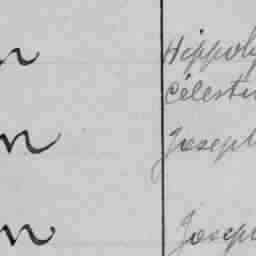 n Hippoly
Célestin
n Joseph
n Joseph